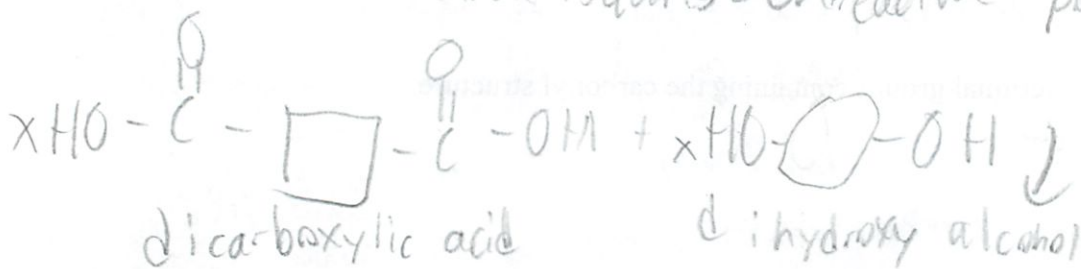 O O
xHO - C - - C - OH + xHO - - OH
dicarboxylic acid dihydroxy alcohol